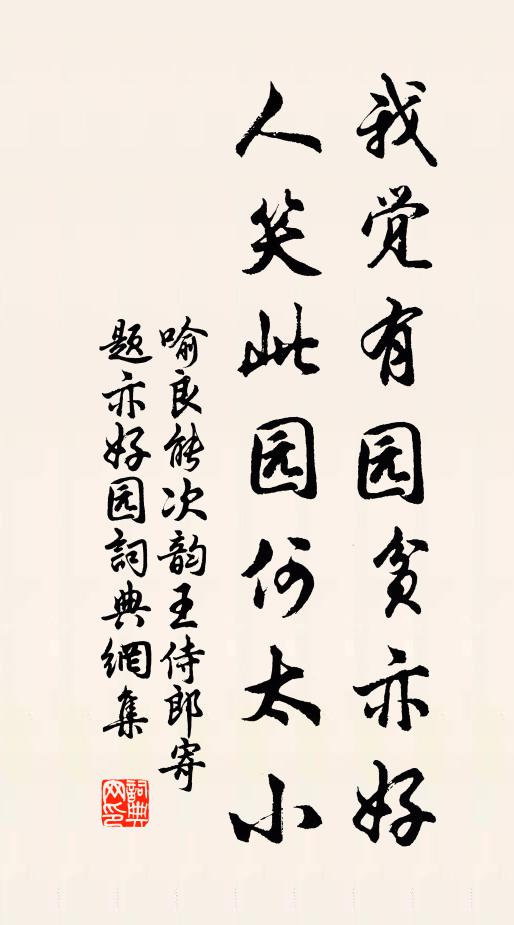 我觉有园贫亦好
人笑此园何太小
喻良能次韵王侍郎寄
题亦好园詞典網集
詞典
网印